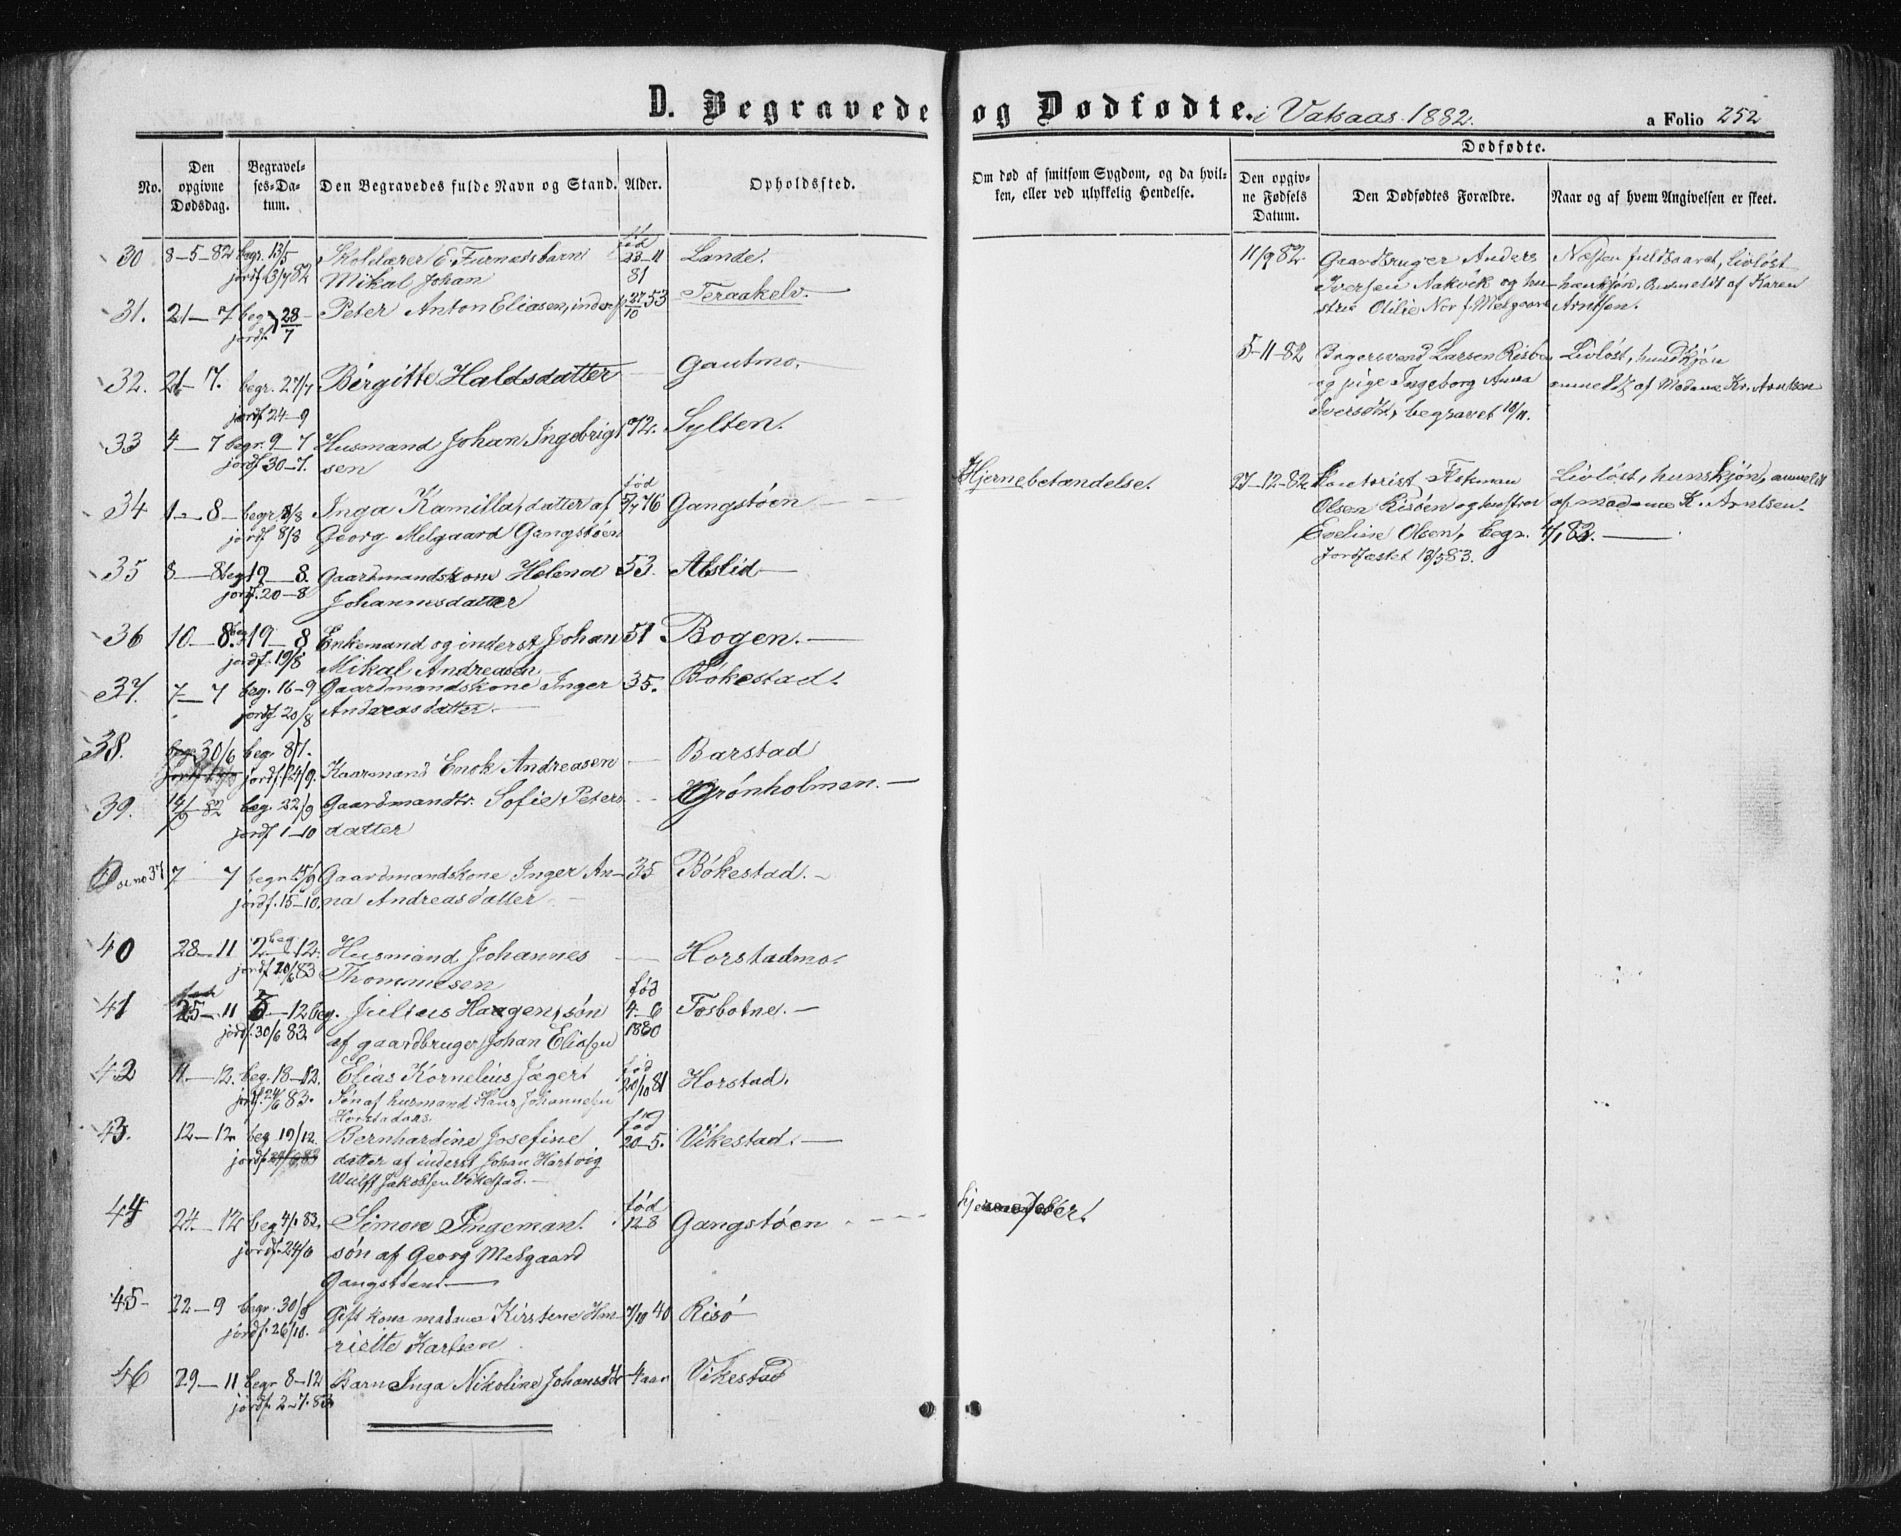 D. Begravede og Dødfødte. i Vatsaas 1882. a Folio 252
No.
Den opgivne Dødsdag.
Begravelses-Datum.
Den Begravedes fulde Navn og Stand.
Alder.
Opholdssted.
Om død af smitsom Sygdom, og da hvilken, eller ved ulykkelig Hendelse.
Dødfødte.
Den opgivne Fødsels Datum.
Den Dødfødtes Forældre.
Naar og af hvem Angivelsen er skeet.
30 8-5-82 begr. 13/5 Skolelærer E. Furnæs barn født 23-11 Lande.
jordf. 3/7 82 Mikal Johan 81
31. 21-7 beg. 28/7 Peter Anton Eliasen, inderst 27/10 53 Teraakelv.
jordf.
32. 21-7. begr. 27/7 Birgitte Haldsdatter Gautmo.
jordf. 24-9
33 4-7 begr. 9-7 Husmand Johan Ingebrigt 72. Sylten.
jordf. 30-7. sen
34 1-8 begr. 8/8 Inga Kamilla, datter af født 5/7 76 Gangstøen Hjernebetændelse.
jordf 8/8 Georg Melgaard Gangstøen
35 8-8 beg 19-8. Gaardmandskone Helena 53. Alslid
jordf. 20-8 Johannesdatter
36 10-8. beg 19-8 Enkemand og inderst Johan 51 Bogen.
jordf. 19/8 Mikal Andreasen
37. 7-7 beg. 16-9 Gaardmandskone Inger 35. Bøkestad.
jordf 20/8 Andreasdatter.
38. 30/6 begr 8/7. Kaarmand Enok Andreasen Barstad
jordf. 24/9.
39. 14/9 82 beg. 22/9 Gaardmandk. Sofie Peters Grønholmen.
jordf 1-10 datter
se no 37 7-7 begr 15/9 Gaardmandskone Inger An- 35 Bøkestad.
jordf. 15-10. na Andreasdatter
40 28-11 beg 2-12. Husmand Johannes Horstadmo.
jordf 20/6 83 Thommesen
41 25-11 3-12 beg. Julius Haagen, søn født 4-6 Fosbotne.
jordf. 30/6 83. af gaardbruger Johan Eliassen 1880
42 11-12. beg. 18-12. Elias Kornelius Jægert født 20/10 81 Horstad.
jordf. 24/6 83. Søn af husmand Hans Johannesen
Horstadaas.
43. 12-12 beg 19/12. Bernhardine Josefine født 20-5. Vikestad.
jordf. 24/6 83 datter af inderst Johan Hartvig
Wulff Jakobsen Vikestad.
44 24-12 beg 4/1 83. Simon Ingeman. født 12-8 Gangstøen
jordf. 24/6 søn af Georg Melgaard
Gangstøen.
45- 22-9 begr. 30/9 Gift kone madame Kirstene Hen- 7/10 40 Risø
jordf. 26/10. riette Karlsen
46 29-11 begr 8-12 Barn Inga Nikoline Johansdtr 4 aar Vikestad
jordf. 2-7. 83.
11/9 82. Gaardbruger Anders
Iversen Nakvik og hu-
stru Otilie Nor f. Melgaard
Næsten fuldbaaret, livløst
hankjøn. Anmeldt af Karen
Arntsen.
5-11-82 Bagersvend Larsen Risøen
og pige Ingeborg Anna
Iversdtr, begravet 18/11.
Livløst, hundkjøn
anmeldt af Madame Kr. Arntsen
27-12-82 Kontorist Flotman
Olsen Risøen og hustru
Eveline Olsen, begr. 4/1 82.
Jordfæstet 13/5 83.
Livløst, hunskjøn, anmeldt
af madame K. Arntsen.